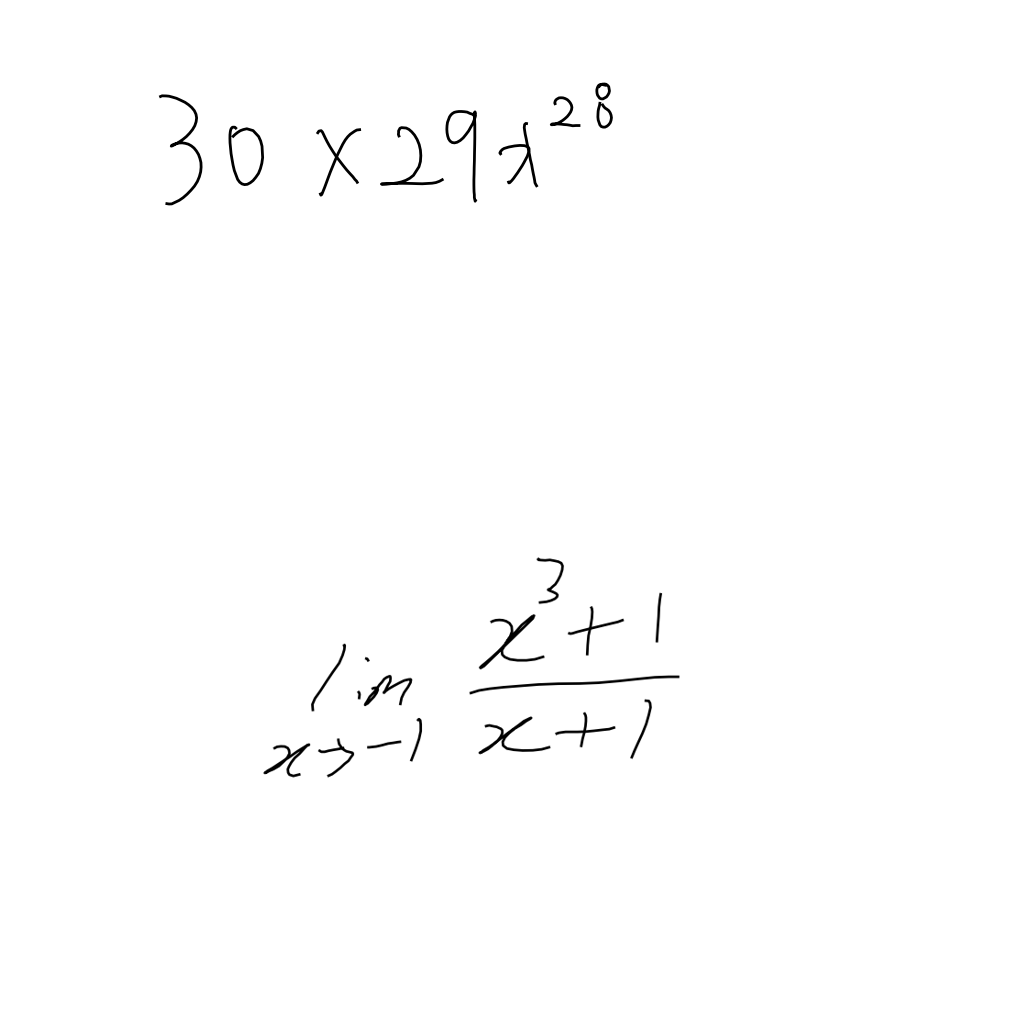 30 × 29x^28
lim x→-1 (x^3+1)/(x+1)